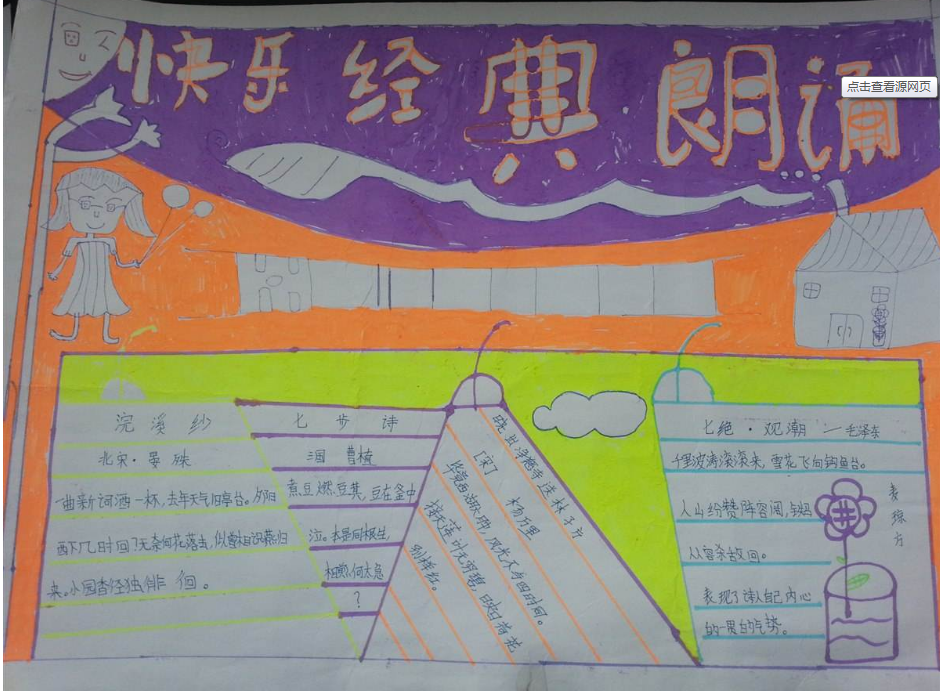 快乐经典朗诵
点击查看源网页
浣溪纱
北宋·晏殊
一曲新词酒一杯,去年天气旧亭台。夕阳
西下几时回?无奈何花落去,似曾相识燕归
来。小园香径独徘徊。
七步诗
三国 曹植
煮豆燃豆萁,豆在釜中
泣。本是同根生,
相煎何太急
?
晓出净慈寺送林子方
[宋] 杨万里
毕竟西湖六月中,风光不与四时同。
接天莲叶无穷碧,映日荷花
别样红。
七绝·观潮 —毛泽东
千里波涛滚滚来,雪花飞向钓鱼台。
人山纷赞阵容阔,铁马
从容杀敌回。
表现了诗人自己内心
的一贯的气势。